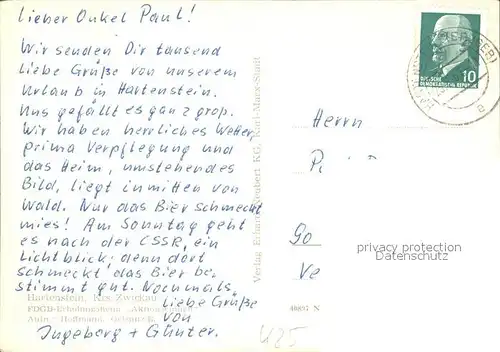 Lieber Onkel Paul!
Wir senden Dir tausend
liebe Grüße von unserem
Urlaub in Hartenstein.
Uns gefällt es ganz groß.
Wir haben herrliches Wetter,
prima Verpflegung und
das Heim, umstehendes
Bild, liegt inmitten von
Wald. Nur das Bier schmeckt
mies! Am Sonntag geht
es nach der CSSR, ein
Lichtblick, denn dort
schmeckt das Bier be-
stimmt gut. Nochmals
liebe Grüße
von
Ingeborg + Günter.
Hartenstein, Krs. Zwickau
FDGB-Erholungsheim
Aufn.: Hoffmann,
Verlag Erhard Neubert KG, Karl-Marx-Stadt
48897 N
U25
DEUTSCHE
DEMOKRATISCHE REPUBLIK
10
Herrn
P
Go
Ve
privacy protection
watermark